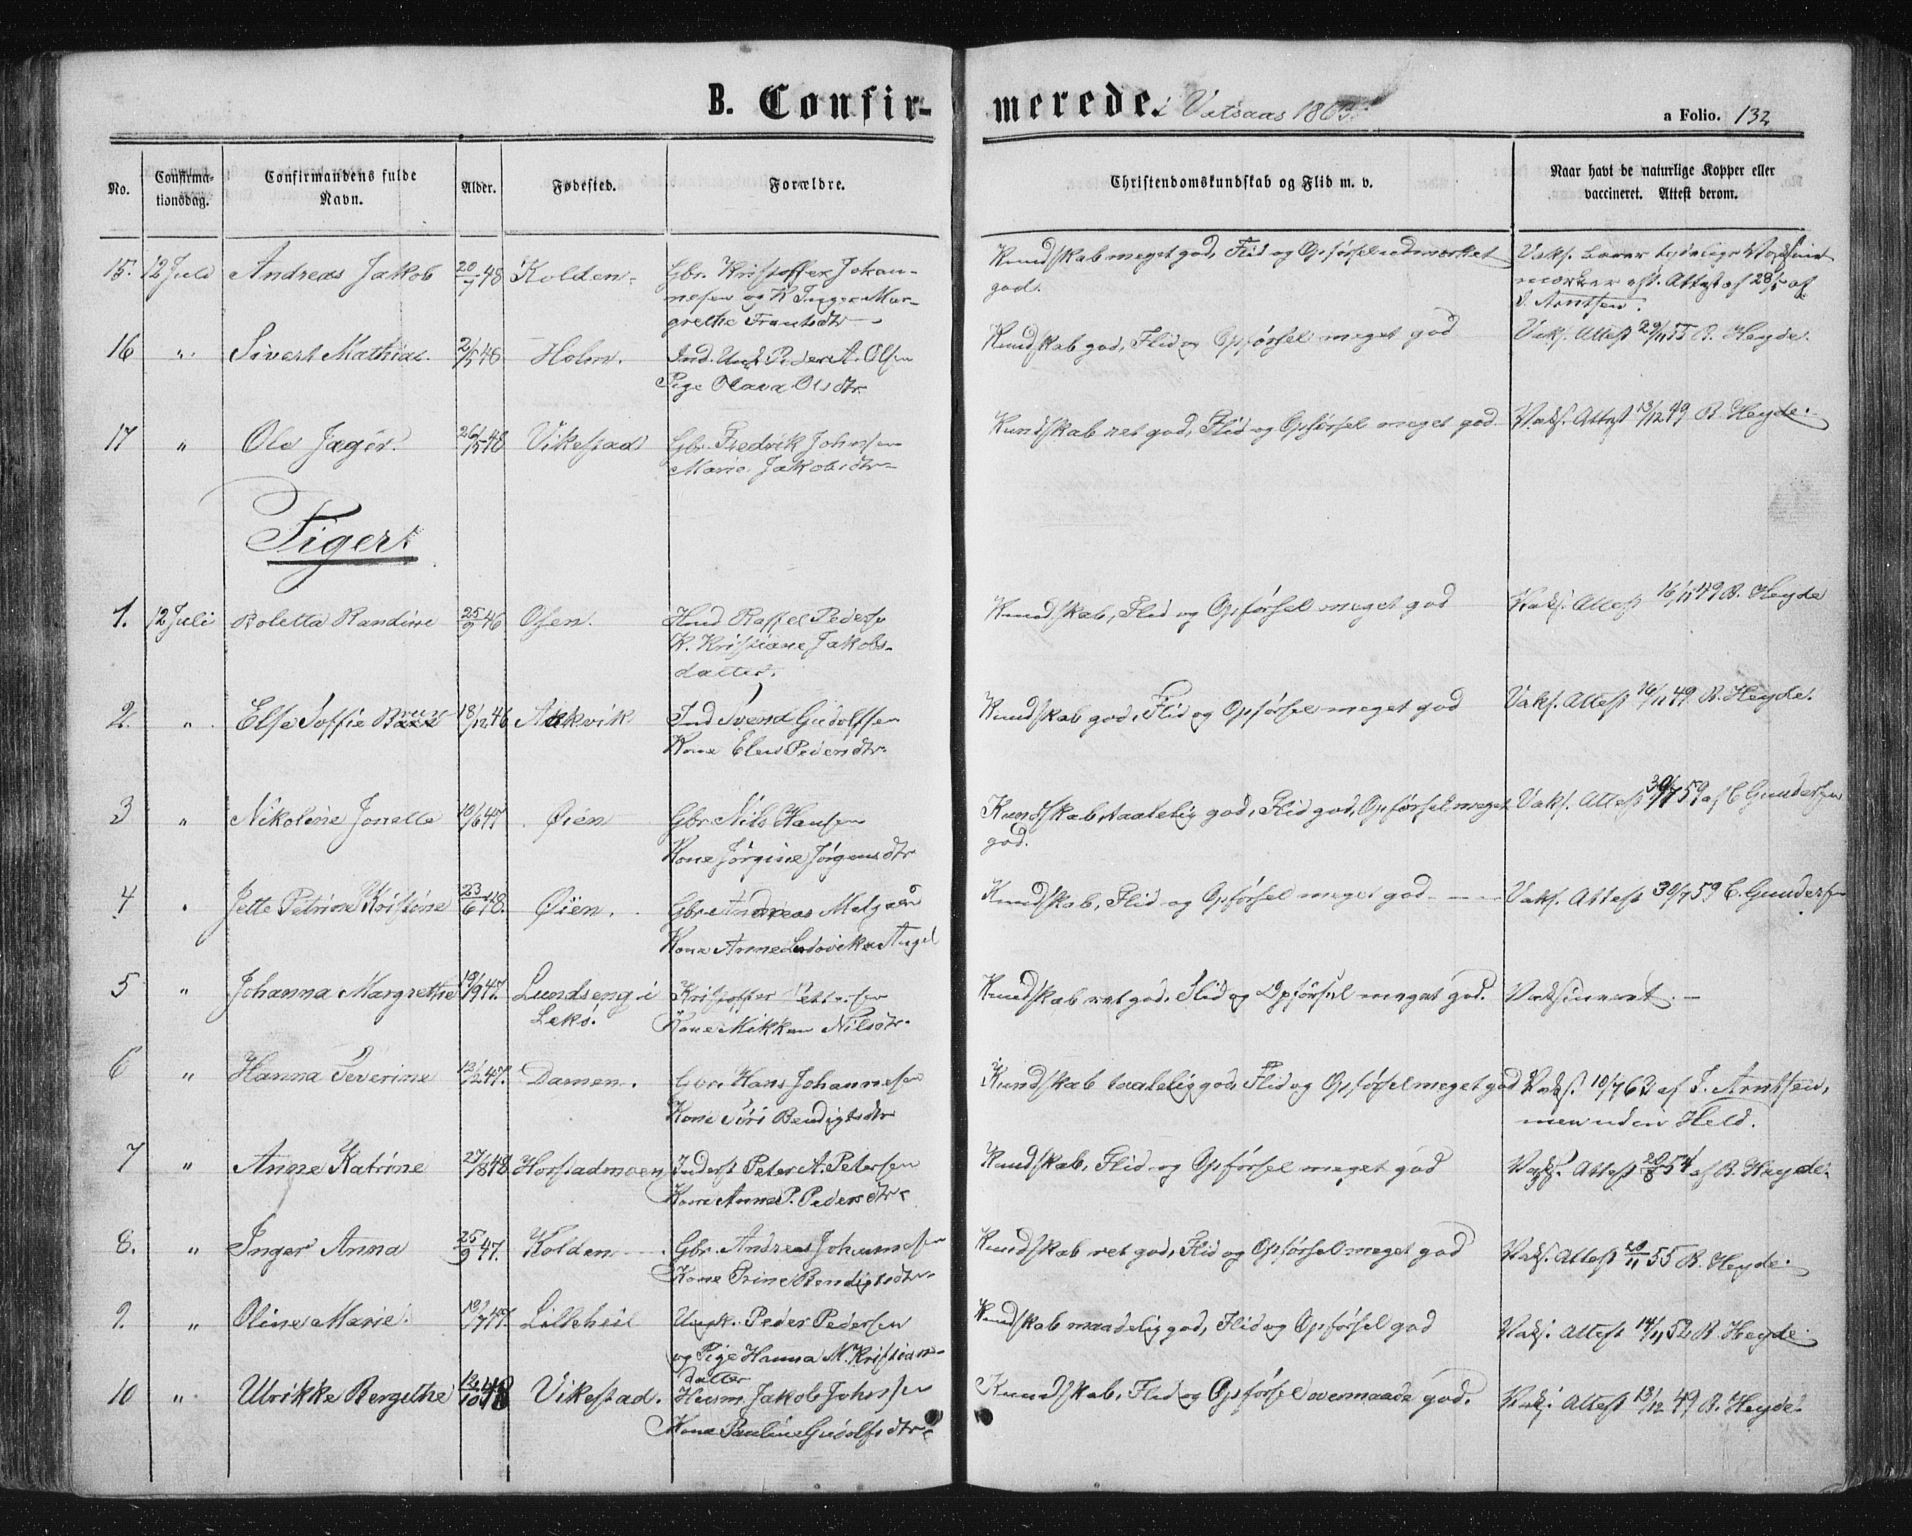 B. Confir- merede i Vatsaas 1863.
a Folio. 132
No. Confirma-tionsdag. Confirmandens fulde Navn. Alder. Fødested. Forældre. Christendomskundskab og Flid m. v. Naar havt de naturlige Kopper eller vaccineret. Attest derom.
15. 12 Juli Andreas Jakob 20/7 48 Kolden Gbr. Kristoffer Johan- Kundskab meget god, Flid og Opførsel udmærket Vaks.
nesen og K. Inger Mar- god. mærker Attest af 28/5 af
grethe Frantsdtr J. Arntsen.
16 " Sivert Mathias 2/5 48 Holm. Ind. Ungk. Peder A. Olsen Kundskab god, Flid og Opførsel meget god Vaks. Attest 29/11 55 B. Heyde.
Pige Olava Olsdtr.
17 " Ole Jager. 26/5 48 Vikestad Gbr. Fredrik Johnsen Kundskab ret god, Flid og Opførsel meget god Vaks. Attest 13/12 49 B. Heyde.
Marie Jakobsdtr
Piger.
1. 12 Juli Boletta Randine 25/9 46 Osen. Huusm. Raffel Peders. Kundskab, Flid og Opførsel meget god Vaks. Attest 16/11 49 B. Heyde
K. Kristiane Jakobs-
datter.
2. " Else Soffie 18/12 46 Aakvik Ind Svend Gudolfsen Kundskab god, Flid og Opførsel meget god Vaks. Attest 16/11 49 B. Heyde.
Kone Elen Pedersdtr.
3 " Nikoline Jonelle 10/6 47 Øien Gbr Nils Hansen Kundskab taalelig god, Flid god, Opførsel meget Vaks. Attest 30/7 59 af C Gundersen
Kone Jørgine Jørgensdtr god.
4 " Jette Petrine Kristine 23/6 48. Øien. Gbr Andreas Melgaar Kundskab, Flid og Opførsel meget god Vaks. Attest 30/7 59 C. Gundersen
Kone Anne Ludovika Angel
5 " Johanna Margrethe 19/9 47. Lundseng i Kristoffer Kundskab ret god, Flid og Opførsel meget god. Vaksineret. -
Lekö. Kone Mikken Nilsdtr.
6 " Hanna Severine 12/2 47. Damen. Gbr. Hans Johannesen Kundskab taalelig god, Flid og Opførsel meget god Vaks. 10/7 62 af J. Arntsen,
Kone Siri Bendigtsdtr men uden Held.
7 " Anne Katrine 27/8 48 Horstadmoen Inderst Peter A. Petersen Kundskab, Flid og Opførsel meget god Vaks. Attest 54 af B. Heyde.
Kone Anne P. Pedersdtr.
8. " Inger Anna 25/9 47. Kolden Gbr. Andreas Johannesen Kundskab ret god, Flid og Opførsel meget god Vaks. Attest 20/11 55 B. Heyde.
Kone Trine Bendigtsdtr.
9. " Oline Marie. 13/7 47. Lilleheil Ungk. Peder Pedersen Kundskab maadelig god, Flid og Opførsel god Vaks. Attest 14/11 52 B. Heyde.
og Pige Hanna M. Kristians-
datter
10 " Ulrikke Bergithe 12/10 48 Vikestad. Husm. Jakob Johnsen Kundskab, Flid og Opførsel overmaade god. Vaks. Attest 13/12 49 B. Heyde.
Kone Pauline Gudolfsdtr.